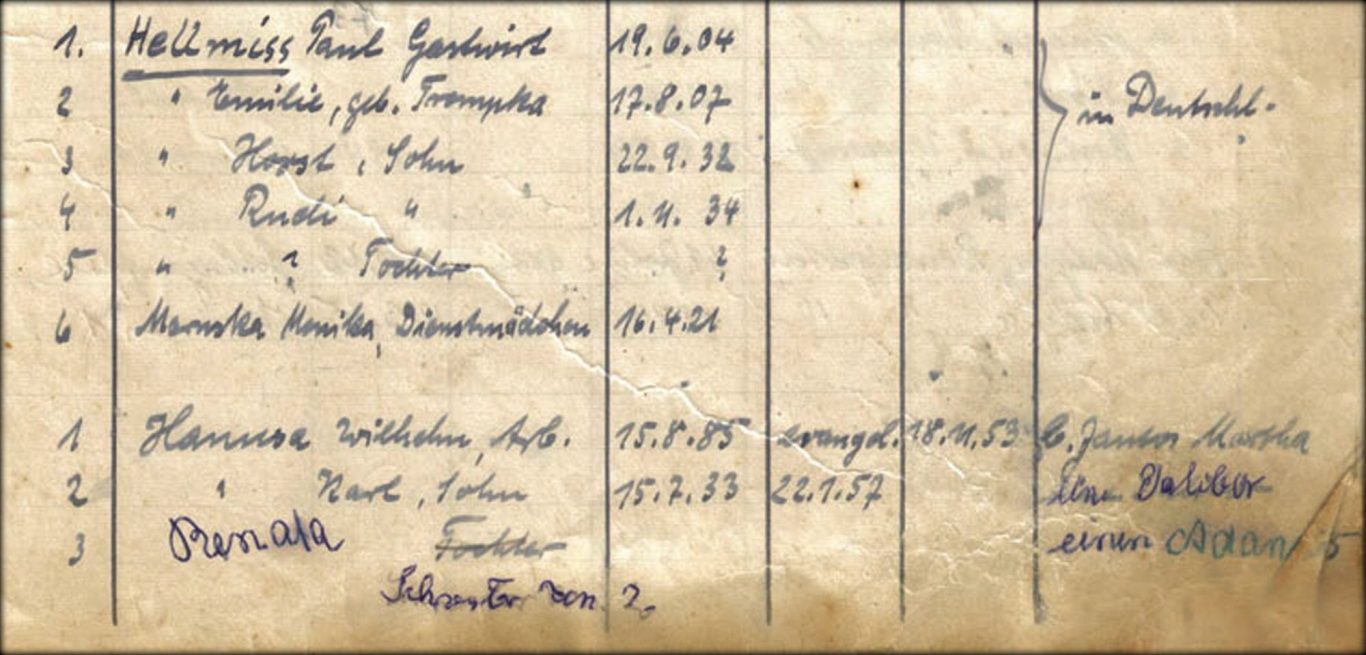 1. Hellmiss Paul Gastwirt 19.6.04
2 " Emilie, geb. Trompka 17.8.07 in Deutschl.
3 " Horst, Sohn 22.9.32
4 " Rudi " 1.11.34
5 " ? Tochter ?
6 Monika, Dienstmädchen 16.4.21
1 Hanusa Wilhelm, Arb. 15.8.85 evangel. 18.11.53 Martha
2 " Karl, Sohn 15.7.33 22.1.57 Dalibor
3 Renata Tochter einen Adam
Schwester von 2.